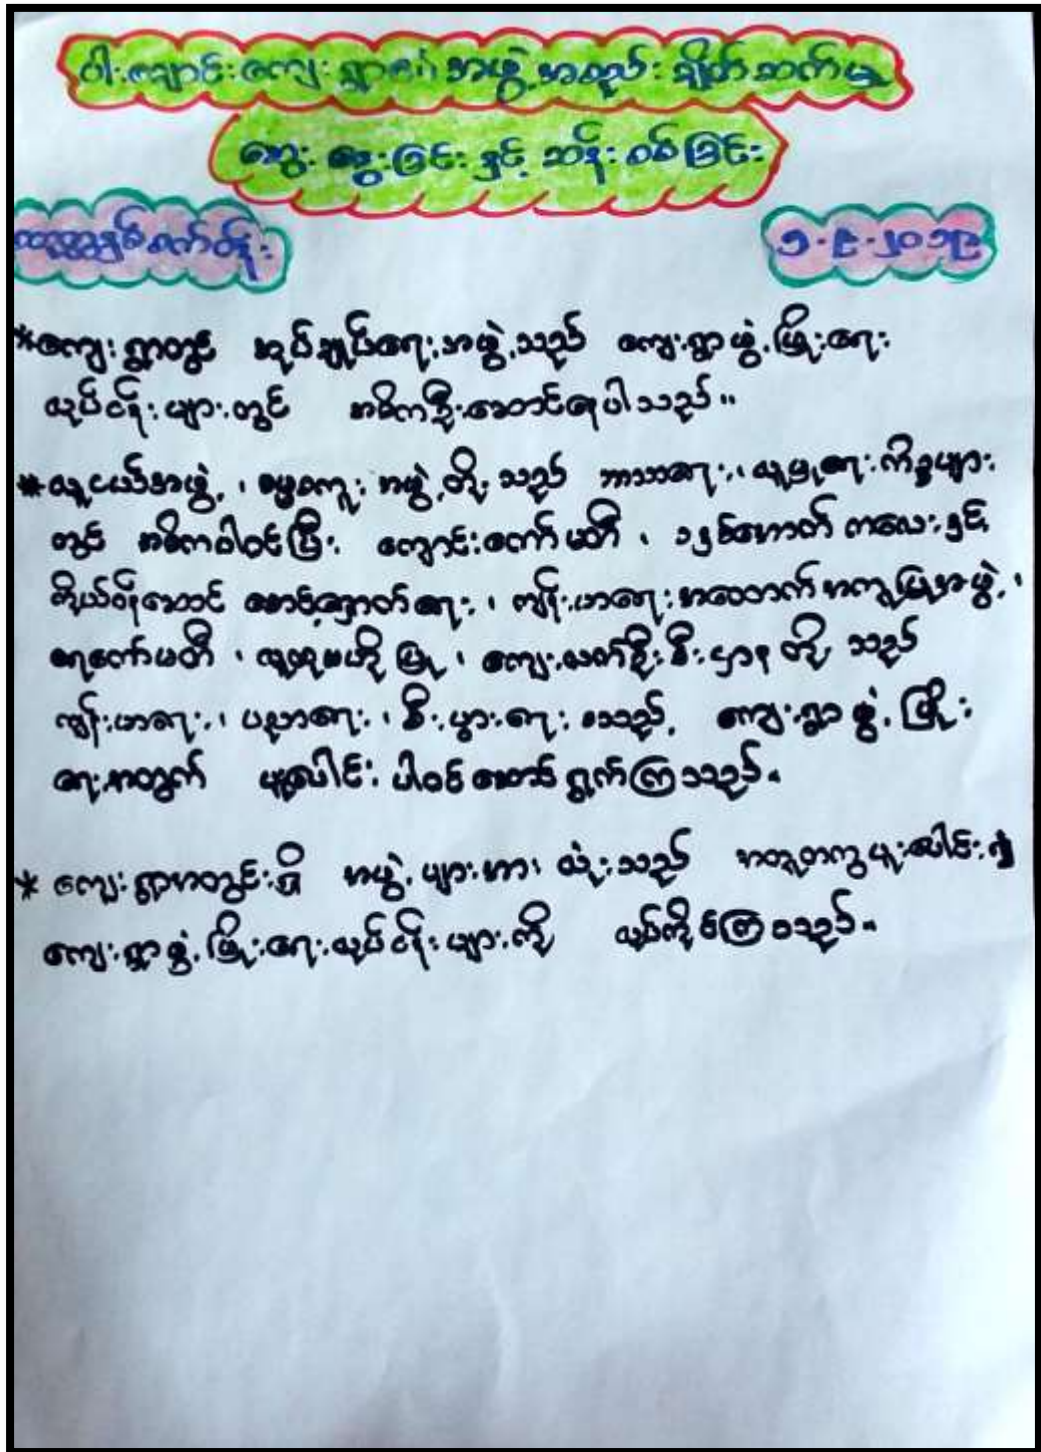 ဝါးကျောင်းကျေးရွာ၏ အဖွဲ့အစည်း ချိတ်ဆက်မှု
ဆွေးနွေးခြင်း နှင့် ဆန်းစစ်ခြင်း
၁-၉-၂၀၁၉
*ကျေးရွာတွင် အုပ်ချုပ်ရေးအဖွဲ့သည် ကျေးရွာဖွံ့ဖြိုးရေး
လုပ်ငန်းများတွင် အဓိကဦးဆောင်နေပါသည်။
*လူငယ်အဖွဲ့၊ ဓမ္မစကူးအဖွဲ့တို့သည် ဘာသာရေး၊ လူမှုရေးကိစ္စများ
တွင် အဓိကပါဝင်ပြီး ကျောင်းကော်မတီ၊ ၁နှစ်အောက် ကလေးနှင့်
ကိုယ်ဝန်ဆောင် စောင့်ရှောက်ရေး၊ ကျန်းမာရေးအထောက်အကူပြုအဖွဲ့၊
ရေကော်မတီ၊ လူထုဗဟိုပြု၊ ကျေးလက်ဦးစီးဌာနတို့သည်
ကျန်းမာရေး၊ ပညာရေး၊ စီးပွားရေး စသည့် ကျေးရွာဖွံ့ဖြိုး
ရေးအတွက် ပူးပေါင်းပါဝင်ဆောင်ရွက်ကြသည်။
* ကျေးရွာအတွင်းရှိ အဖွဲ့များအားလုံးသည် အတူတကွပူးပေါင်း၍
ကျေးရွာဖွံ့ဖြိုးရေးလုပ်ငန်းများကို လုပ်ကိုင်ကြသည်။